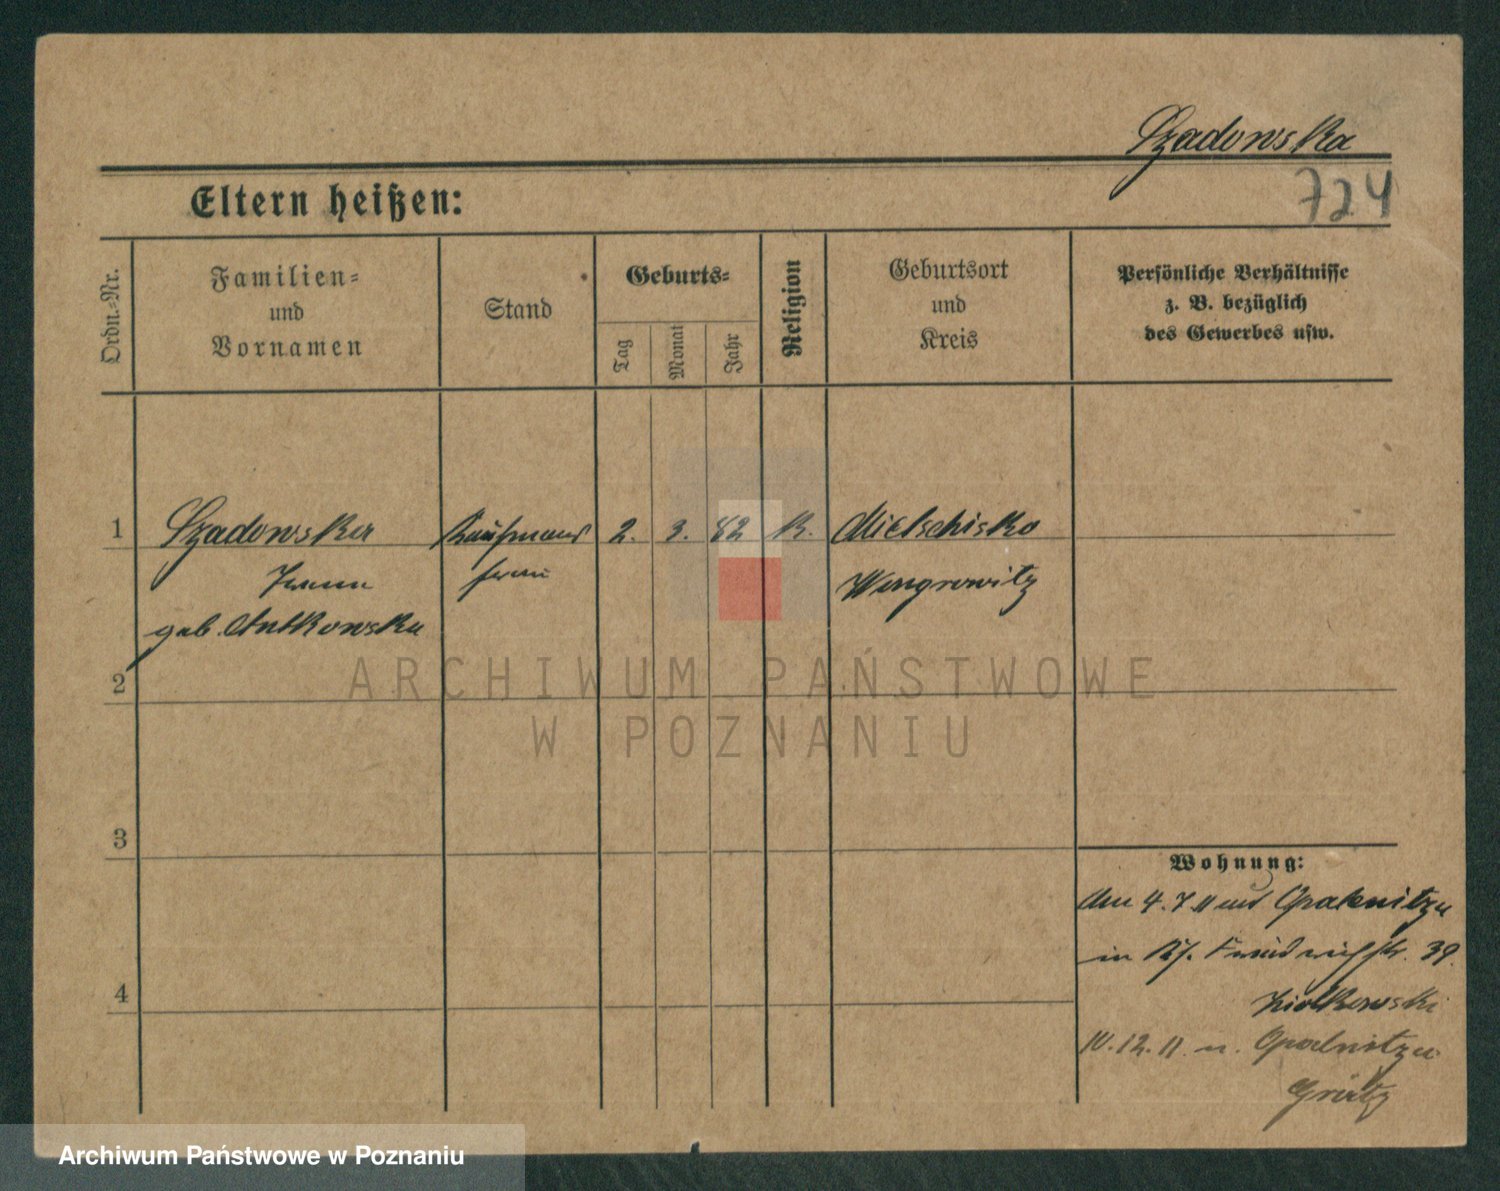 Szadowska
724
Eltern heißen:
Ordn.-Nr.
Familien-
und
Vornamen
Stand
Geburts-
Tag
Monat
Jahr
Religion
Geburtsort
und
Kreis
Persönliche Verhältnisse
z. B. bezüglich
des Gewerbes usw.
1
Szadowska
geb. Antkowska
Kaufmanns
frau
2.
3.
82
K.
Mietschisko
Wongrowitz
2
3
4
Wohnung:
den 4.7.11 aus Opalenitza
in Friedrichstr. 39.
Ziolkowski
10.12.11. n. Opalnitza
Grätz
ARCHIWUM PAŃSTWOWE
W POZNANIU
Archiwum Państwowe w Poznaniu